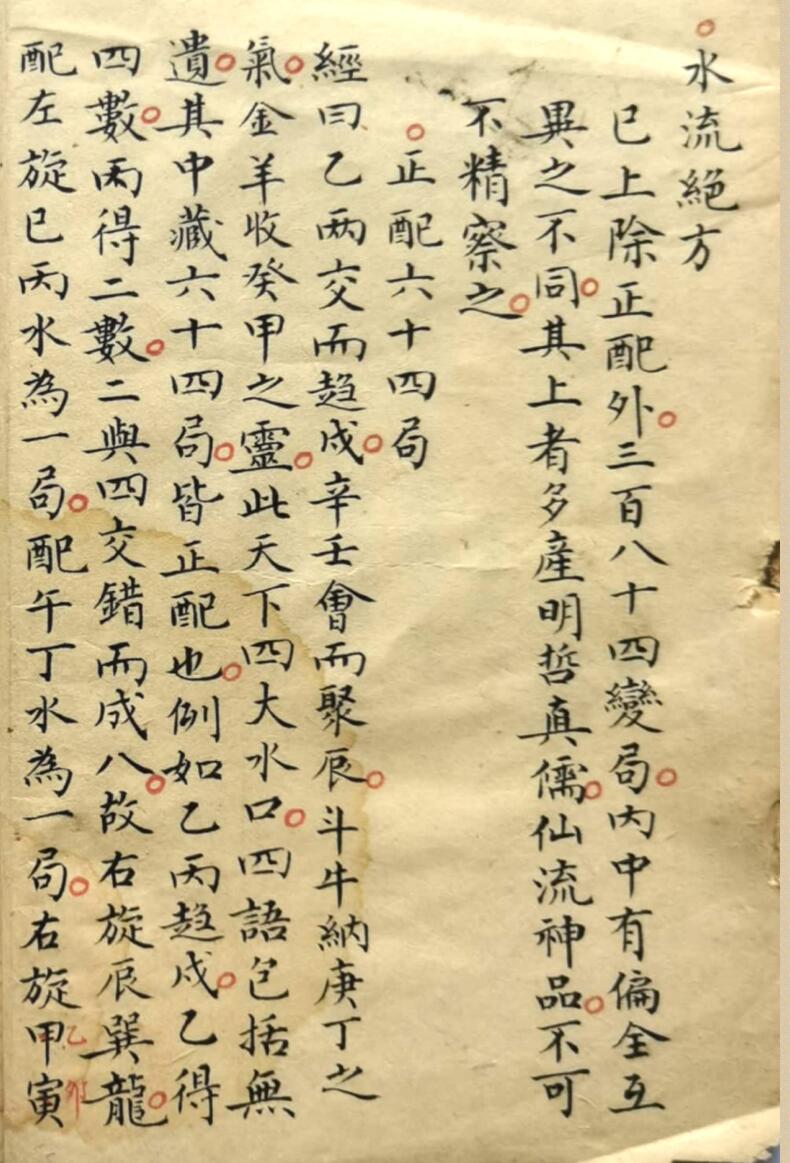 。水流絕方
已上除正配外。三百八十四變局。內中有偏全互
異之不同。其上者多產明哲真儒。仙流神品。不可
不精察之。
。正配六十四局
經曰乙丙交而趨戌。辛壬會而聚辰。斗牛納庚丁之
氣。金羊收癸甲之靈。此天下四大水口。四語包括無
遺。其中藏六十四局。皆正配也。例如乙丙趨戌。乙得
四數。丙得二數。二與四交錯而成八。故右旋辰巽龍。
配左旋巳丙水為一局。配午丁水為一局。右旋甲寅
乙卯